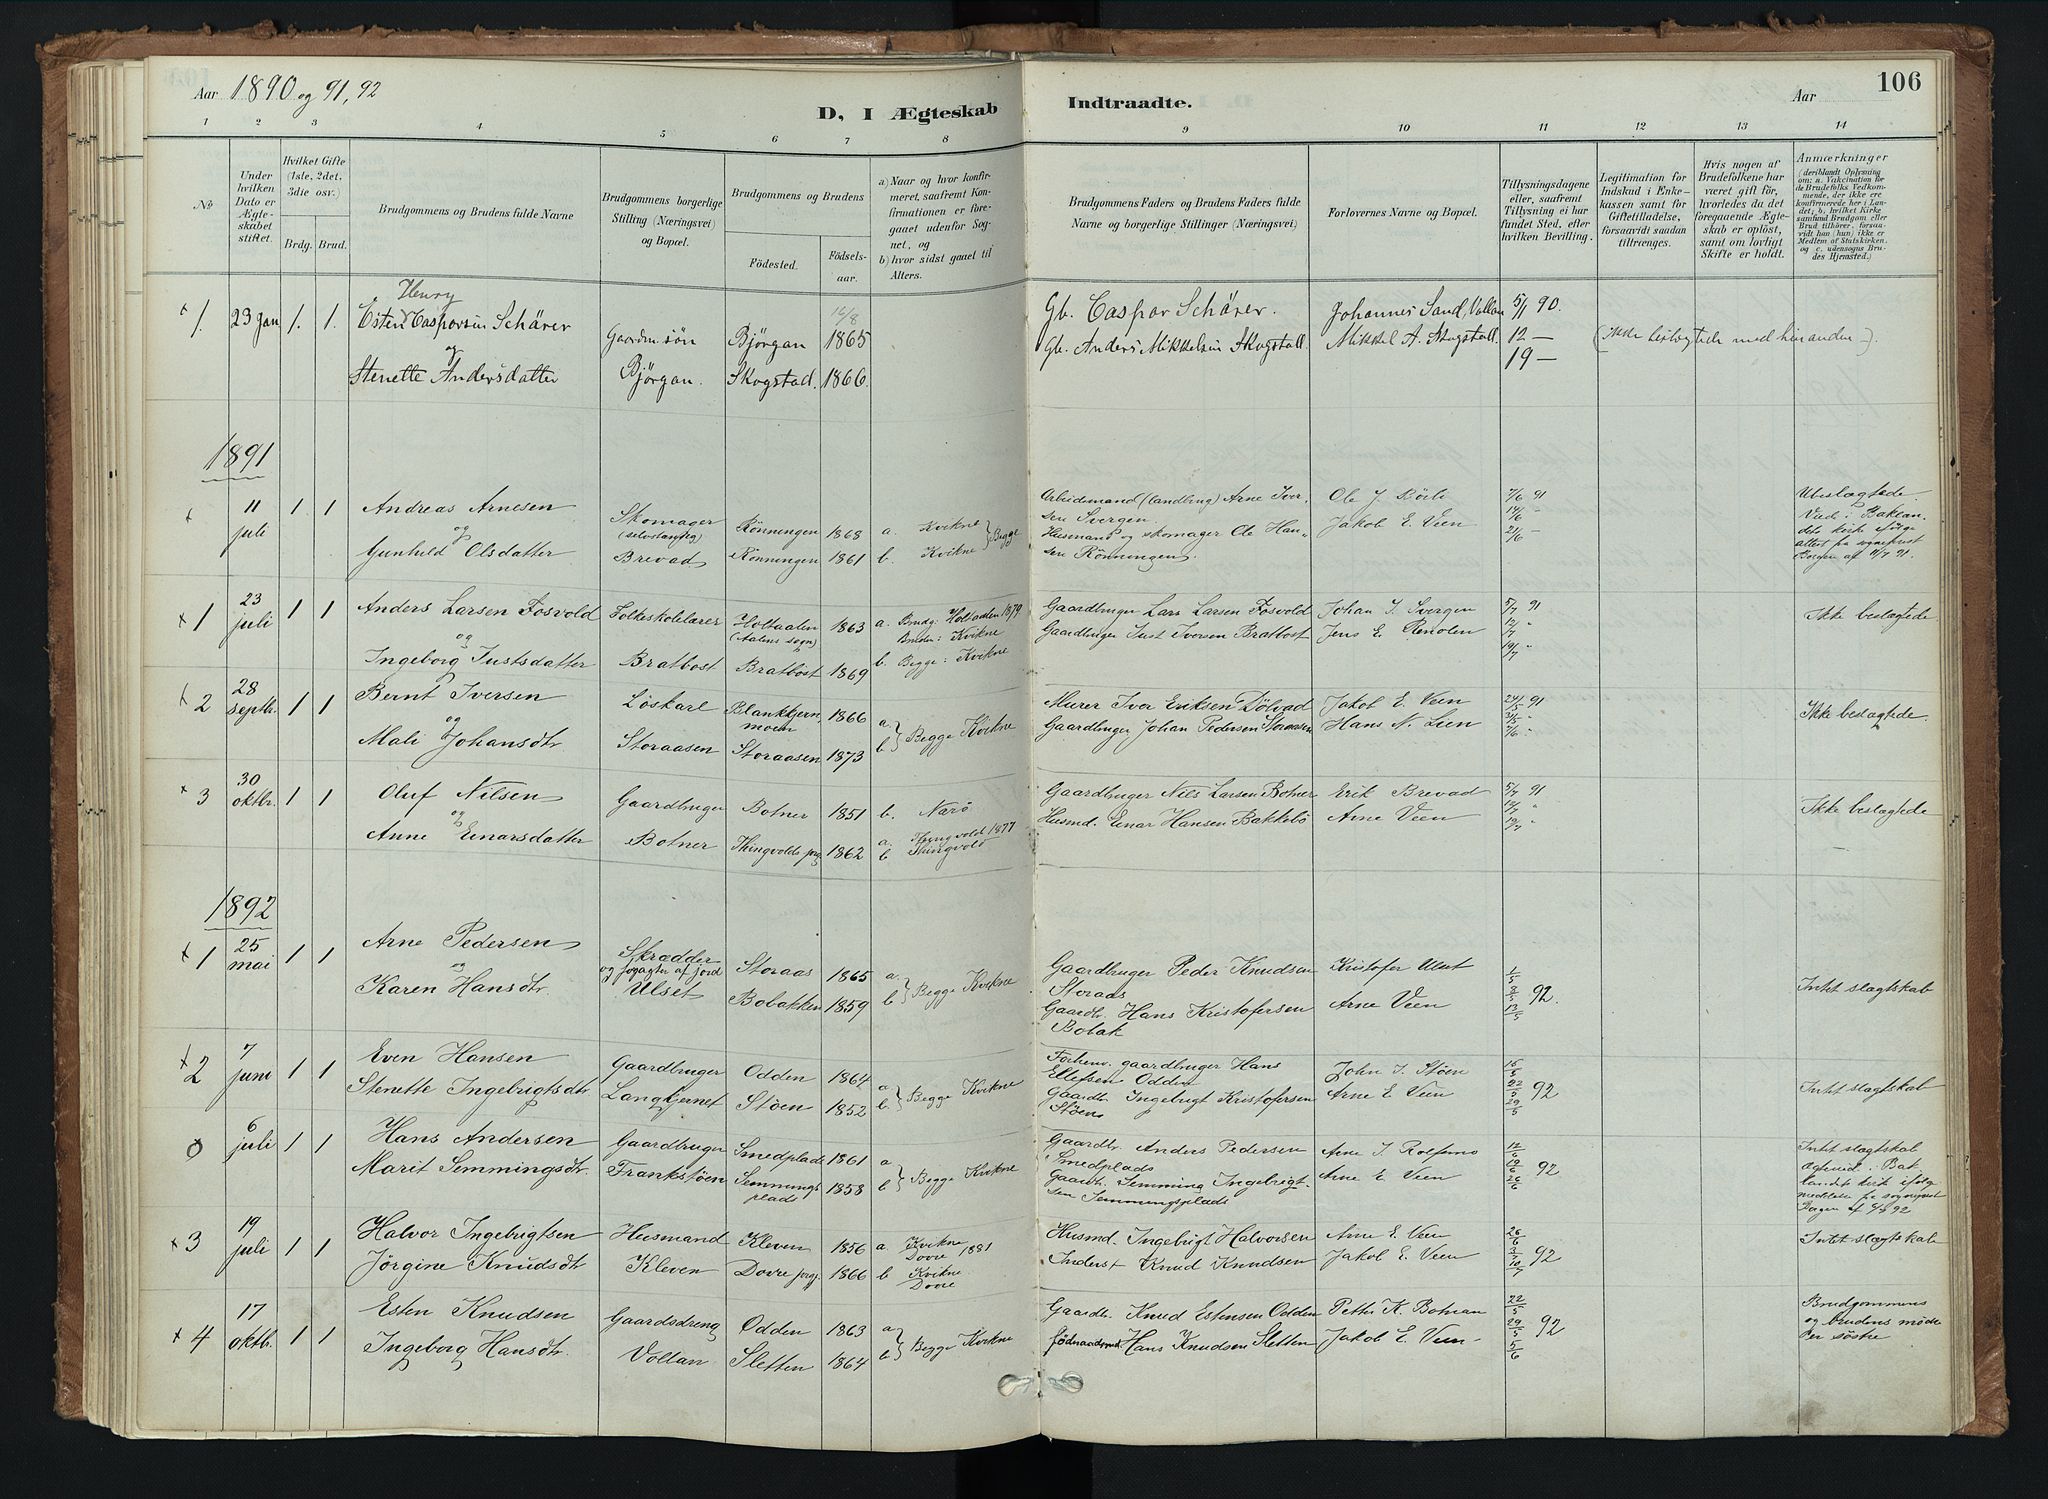 Aar 1890 og 91, 92
D, I Ægteskab Indtraadte.
Aar 106
1 2 3 4 5 6 7 8 9 10 11 12 13 14
No
Under hvilken Dato er Ægteskabet stiftet.
Hvilket Gifte (1ste, 2det, 3die osv.)
Brdg. Brud.
Brudgommens og Brudens fulde Navne
Brudgommens borgerlige Stilling (Næringsvei) og Bopæl.
Brudgommens og Brudens
Fødested. Fødselsaar.
a) Naar og hvor konfirmeret, saafremt Konfirmationen er foregaaet udenfor Sognet, og
b) hvor sidst gaaet til Alters.
Brudgommens Faders og Brudens Faders fulde Navne og borgerlige Stillinger (Næringsvei)
Forlovernes Navne og Bopæl.
Tillysningsdagene eller, saafremt Tillysning ei har fundet Sted, efter hvilken Bevilling.
Legitimation for Indskud i Enkekassen samt for Giftetilladelse, forsaavidt saadan tiltrænges.
Hvis nogen af Brudefolkene har været gift før, hvorledes da det foregaaende Ægteskab er opløst, samt om lovligt Skifte er holdt.
Anmærkninger (deriblandt Oplysning om: a. Vakcination for de Brudefolks Vedkommende, der ikke ere konfirmerede her i Landet; b. hvilket Kirkesamfund Brudgom eller Brud tilhører, forsaavidt han (hun) ikke er Medlem af Statskirken, og c. udensogns Brudes Hjemsted.)
1. 23 Jan 1. 1. Esten Henry Caspersen Schärer
og
Stenette Andersdatter
Gaardm. søn Bjørgan.
Bjørgan 16/8 1865
Skogstad. 1866.
Gb. Caspar Schärer.
Gb. Anders Mikkelsen Skogstad.
Johannes Sand, Vollan
Mikkel A. Skogstad.
5/1 90.
12 —
19 —
(ikke beslægtede med hinanden).
1891
11 juli 1 1 Andreas Arnesen
og
Gunhild Olsdatter
Skomager (selvstændig)
Brevad
Rönningen 1868
Rönningen 1861
a. Kvikne
b. Kvikne } Begge
Arbeidsmand (landling) Arne Iversen Svergen.
Husmand og skomager Ole Hansen Rönningen.
Ole J.
Jakob E. Veen
7/6 91
14/6 -
21/6 -
Ubeslægtede. Viede i Baklandets kirke ifølge attest fra sogneprest af 11/7 91.
1 23 juli 1 1 Anders Larsen Fosvold
og
Ingeborg Justsdatter
Folkeskolelærer
Bratbost
Holtaalen (Aalens sogn) 1863
Bratbost 1869
a. Brudg: Holtaalen 1879
Bruden: Kvikne
b. Begge: Kvikne
Gaardbruger Lars Larsen Fosvold
Gaardbruger Just Iversen Bratbost
Johan J. Svergen
Jens E. Renolen
5/7 91
12/7 "
19/7 "
Ikke beslægtede
2 28 septb. 1 1 Bernt Iversen
og
Mali Johansdtr
Løskarl
Storaasen
Blankkjernmoen 1866
Storaasen 1873
a. b. } Begge Kvikne
Murer Iver Eriksen Dölvad
Gaardbruger Johan Pedersen Storaasen
Jakob E. Veen
Hans N. Lien
24/5 91
31/5 "
7/6 "
Ikke beslægtede.
3 30 oktbr. 1 1 Oluf Nilsen
og
Anne Einarsdatter
Gaardbruger
Botner
Botner 1851
Thingvolds prg. 1862
b. Narö
a. Thingvold 1877
b Thingvold
Gaardbruger Nils Larsen Botner
Husmd. Einar Hansen Bakkebö
Erik Brevad
Arne Veen
5/7 91
12/7 "
19/7
Ikke beslægtede
1892
1 25 mai 1 1 Arne Pedersen
og
Karen Hansdtr.
Skrædder og forpagter af jord
Ulset
Storaas 1865
Bobakken 1859
a. b } Begge Kvikne
Gaardbruger Peder Knudsen Storaas
Gaardbr. Hans Kristofersen Bobak
Kristofer Ulset
Arne Veen
1/5 8/5 92. 13/5
Intet slægtskab
2 7 juni 1 1 Even Hansen
Stenette Ingebrigtsdtr
Gaardbruger
Langkjernet
Odden 1864
Støen 1852
a. b. } Begge Kvikne
Forhenv. gaardbruger Hans Ellefsen Odden
Gaardb. Ingebrigt Kristofersen Støen
John J. Støen
Arne E. Veen
15/5 22/5 92 29/5
Intet slægtskab
0 6 juli 1 1 Hans Andersen
Marit Semmingsdtr.
Gaardbruger
Frankstøen
Smedplads 1861
Semmingsplads 1858
a b } Begge Kvikne
Gaardbr. Anders Pedersen Smedplads
Gaardb. Semming Ingebrigtsen Semmingsplads
Arne J.
Arne E Veen
12/6 19/6 92 26/6
Intet slægtskab ægteviet i Baklandets kirk ifølge meddelelse fra sogneprest
3 19 juli 1 1 Halvor Ingebrigtsen
Jörgine Knudsdtr
Husmand
Kleven
Kleven 1856
Dovre prgj. 1866
a Kvikne Dovre 1881
b Kvikne Dovre
Husmd. Ingebrigt Halvorsen
Inderst Knud Knudsen
Arne E. Veen
Jakob E. Veen
26/6 3/7 92 10/7
Intet slægtskab
4 17 oktbr. 1 1 Esten Knudsen
Ingeborg Hansdtr.
Gaardsdreng
Vollan
Odden 1863
Sletten 1864
a b } Begge Kvikne
Gaardb. Knud Estensen Odden
Hans Knudsen Sletten
Petter K. Botnan
Jakob E. Veen
22/5 29/5 92 5/6
Brudgommens og brudens mödre er söstre